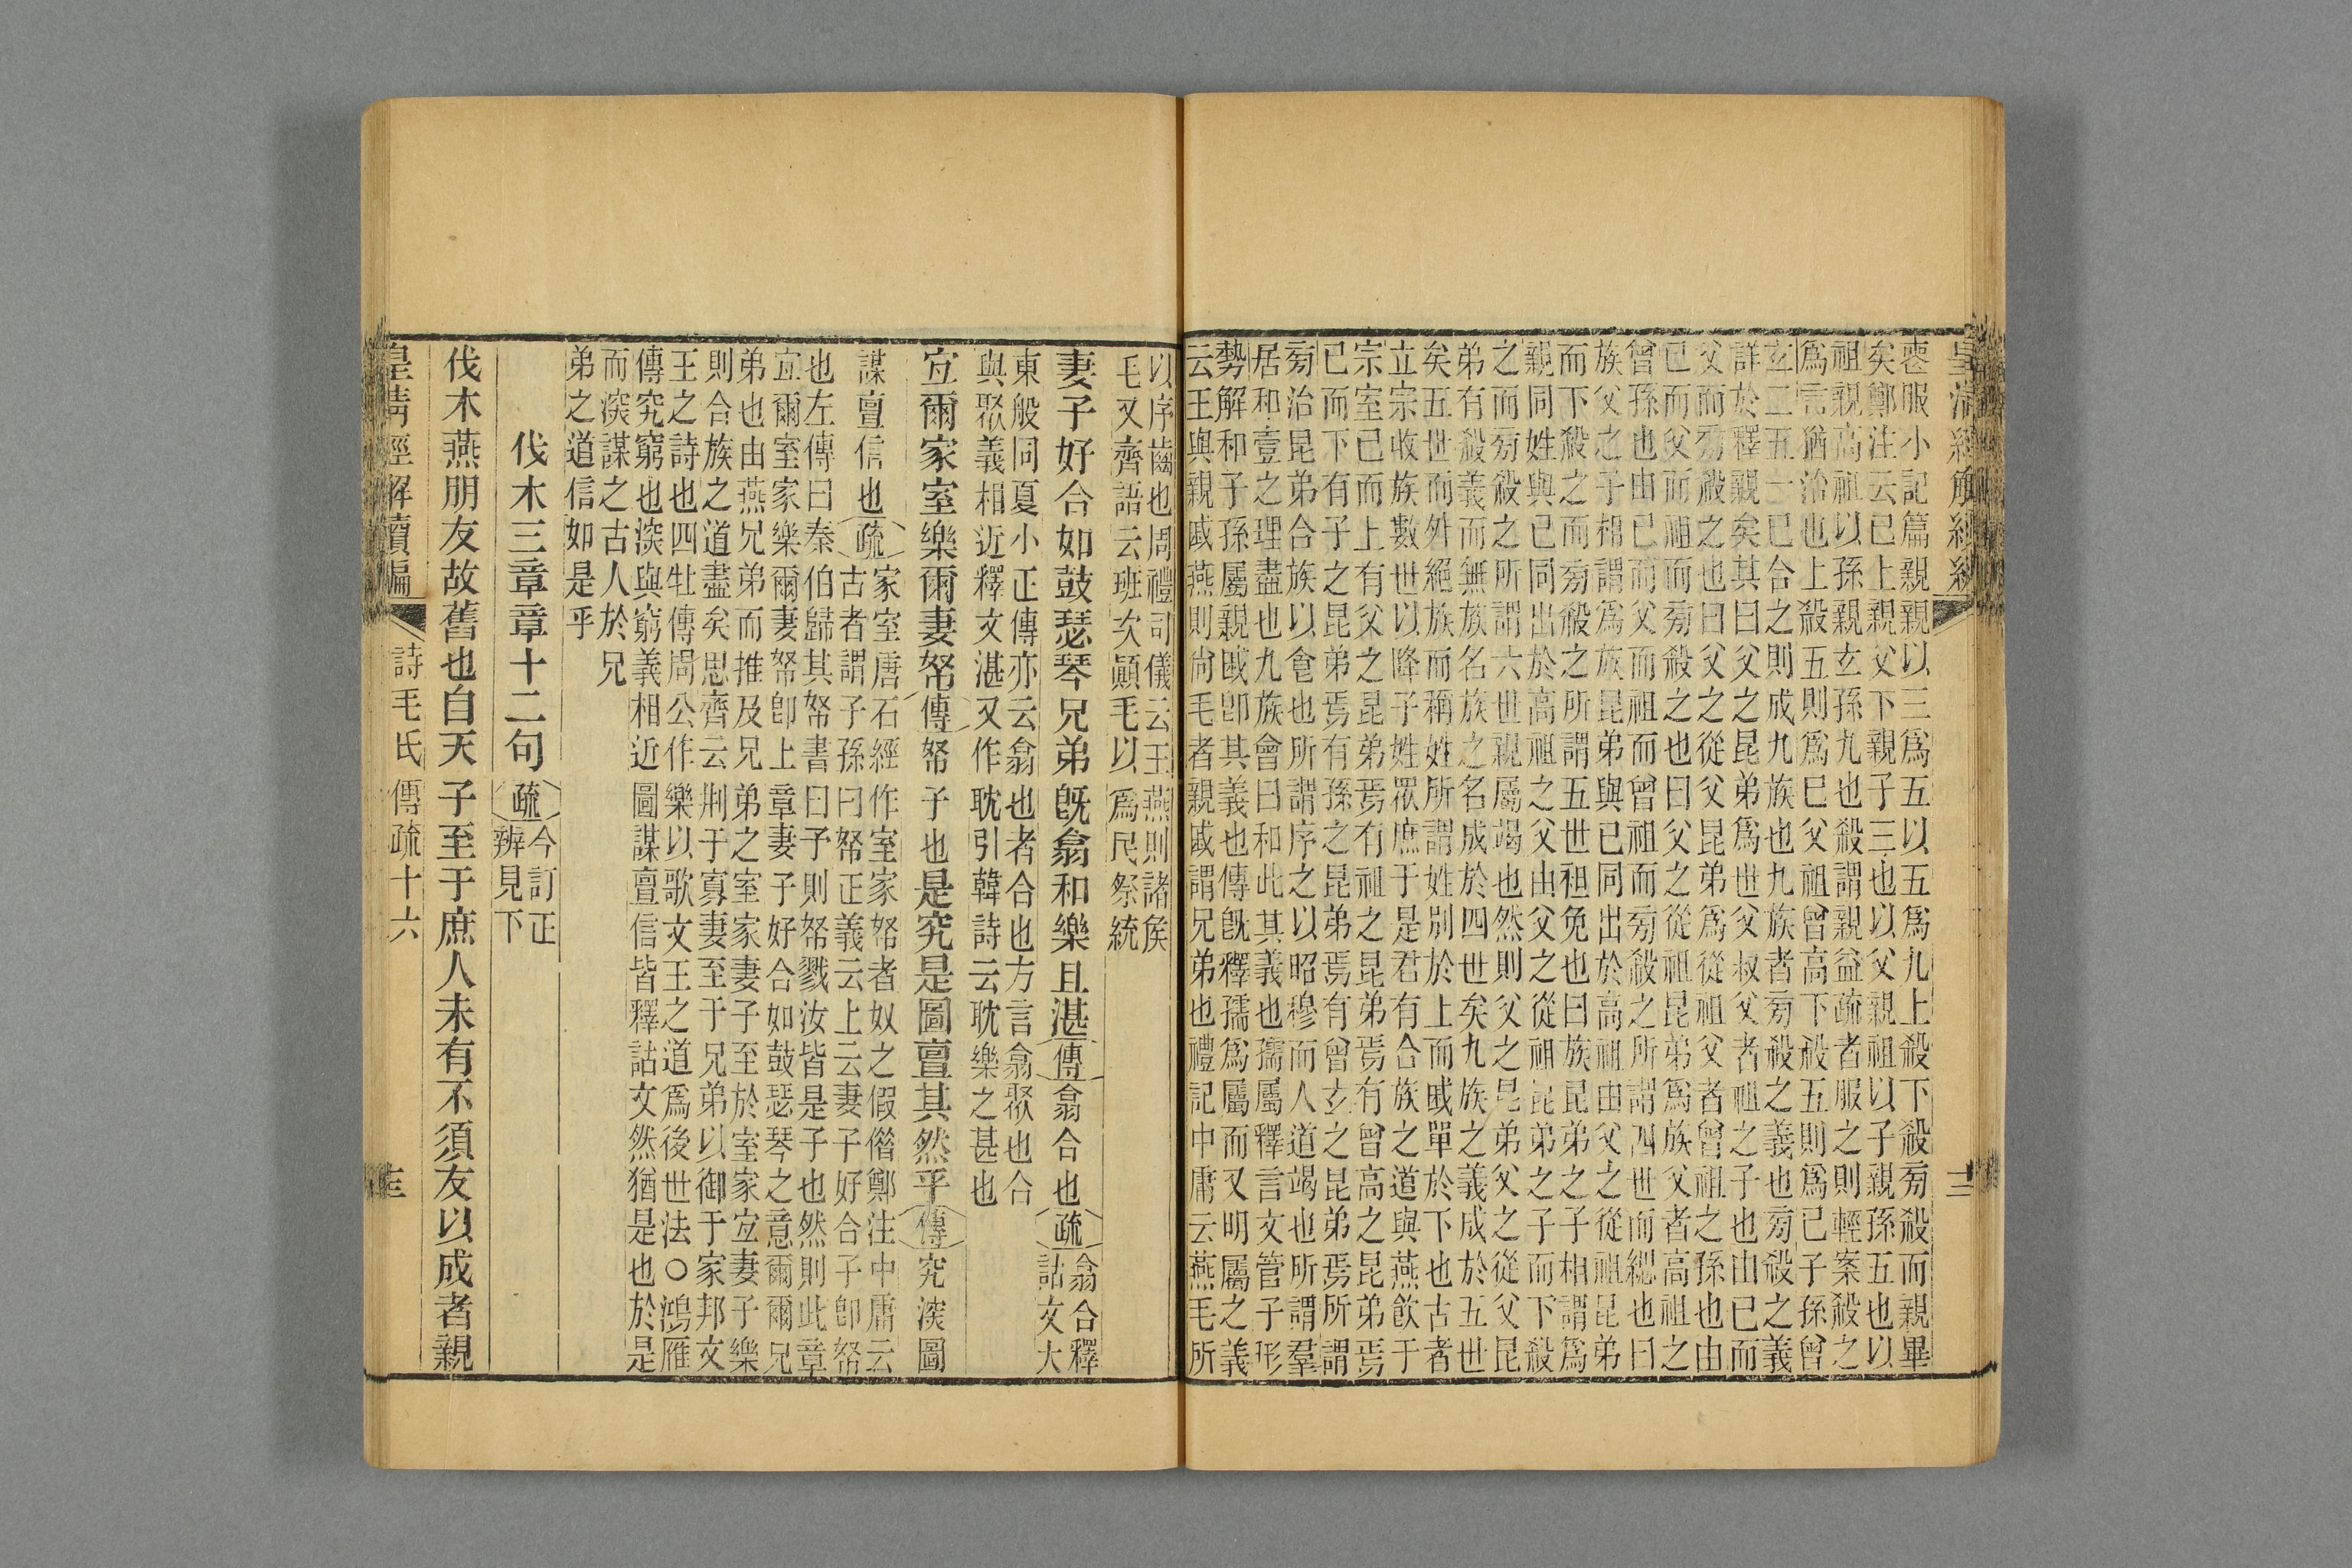 皇清經解續編
喪服小記篇親親以三爲五以五爲九上殺下殺旁殺而親畢
矣鄭注云已上親父下親子三也以父親祖以子親孫五也以
祖親高祖以孫親玄孫九也殺謂親益疏者服之則輕案殺之
爲言猶治也上殺五則爲已父祖曾高下殺五則爲已子孫曾
玄二五一已合之則成九族也九族者旁殺之義也旁殺之義
詳於釋親矣其曰父之昆弟爲世父叔父者祖之子也由已而
父而旁殺之也曰父之從父昆弟爲從祖父者曾祖之孫也由
已而父而祖而旁殺之也曰父之從祖昆弟爲族父者高祖之
曾孫也由已而父而祖而曾祖而旁殺之所謂四世而緦也曰
族父之子相謂爲族昆弟與已同出於高祖由父之從祖昆弟
而下殺之而旁殺之所謂五世袒免也曰族昆弟之子相謂爲
親同姓與已同出於高祖之父由父之從祖昆弟之子而下殺
之而旁殺之所謂六世親屬竭也然則父之昆弟父之從父昆
弟有殺義而無族名族之名成於四世矣九族之義成於五世
矣五世而外絕族而稱姓所謂姓別於上而戚單於下也古者
立宗收族數世以降子姓眾庶于是君有合族之道與燕飲于
宗室已而上有父之昆弟焉有祖之昆弟焉有曾高之昆弟焉
已而下有子之昆弟焉有孫之昆弟焉有曾玄之昆弟焉所謂
旁治昆弟合族以食也所謂序之以昭穆而人道竭也所謂羣
居和壹之理盡也九族會曰和此其義也孺屬釋言文管子形
勢解和子孫屬親戚卽其義也傳旣釋孺爲屬而又明屬之義
云王與親戚燕則尚毛者親戚謂兄弟也禮記中庸云燕毛所
以序齒也周禮司儀云王燕則諸矦
毛又齊語云班次顚毛以爲民祭統
妻子好合如鼓瑟琴兄弟旣翕和樂且湛傳翕合也疏翕合釋
詁文大
東般同夏小正傳亦云翕也者合也方言翕聚也合
與聚義相近釋文湛又作耽引韓詩云耽樂之甚也
宜爾家室樂爾妻帑傳帑子也是究是圖亶其然乎傳究深圖
謀亶信也疏家室唐石經作室家帑者奴之假借鄭注中庸云
古者謂子孫曰帑正義云上云妻子好合子卽帑
也左傳曰秦伯歸其帑書曰予則帑戮汝皆是子也然則此章
宜爾室家樂爾妻帑卽上章妻子好合如鼓瑟琴之意爾兄
弟也由燕兄弟而推及兄弟之室家妻子至於室家宜妻子樂
則合族之道盡矣思齊云刑于寡妻至于兄弟以御于家邦文
王之詩也四牡傳周公作樂以歌文王之道爲後世法○鴻雁
傳究窮也深與窮義相近圖謀亶信皆釋詁文然猶是也於是
而深謀之古人於兄
弟之道信如是乎
伐木三章章十二句疏今訂正
辨見下
伐木燕朋友故舊也自天子至于庶人未有不須友以成者親
皇清經解續編 詩毛氏傳疏十六